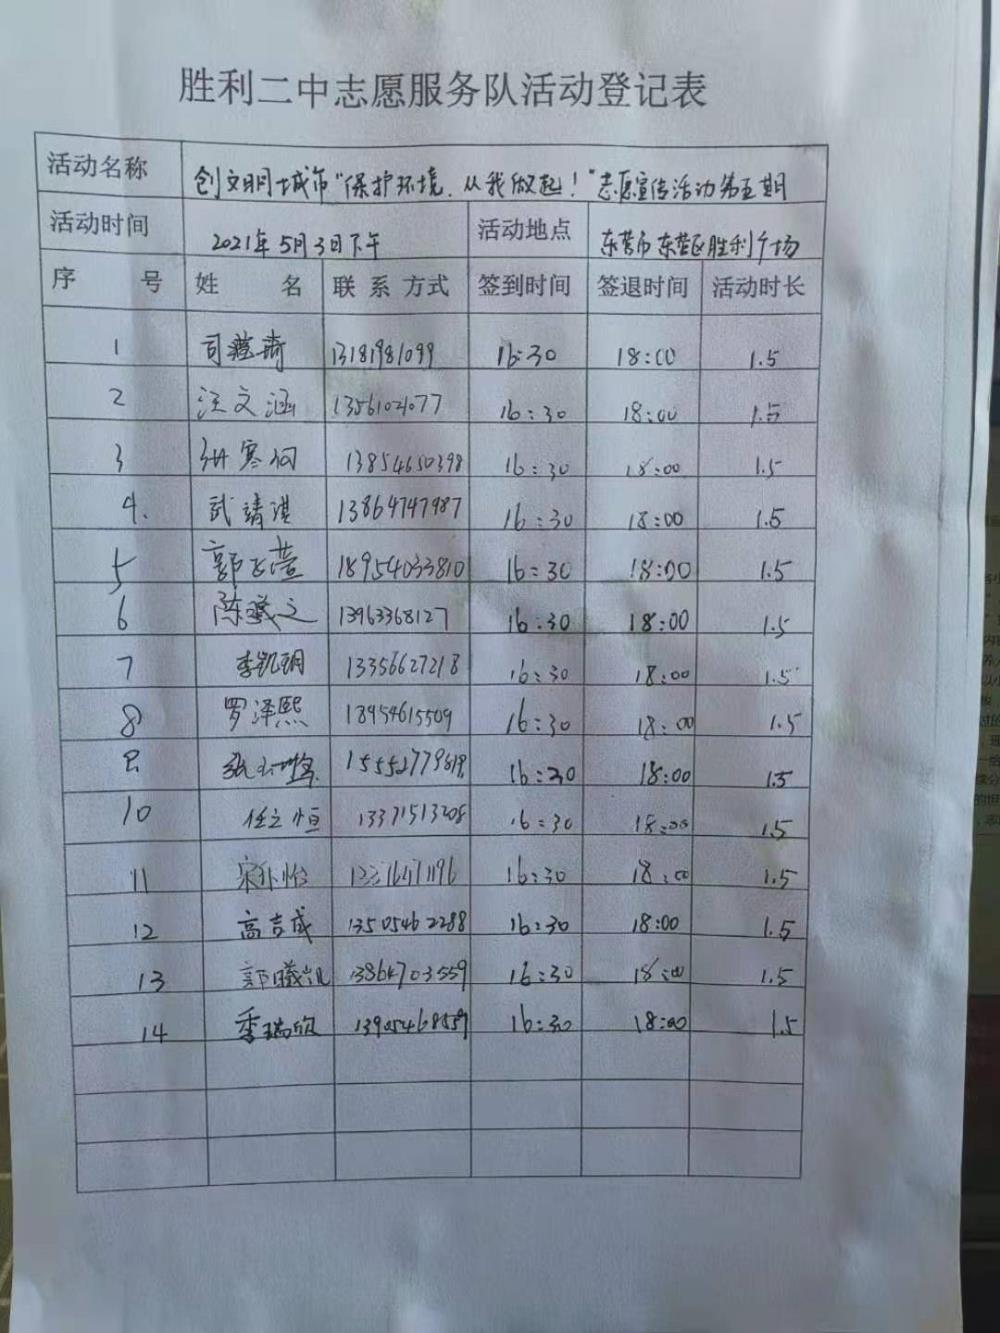 胜利二中志愿服务队活动登记表
活动名称 创文明城市"保护环境、从我做起!"志愿宣传活动第五期
活动时间 2021年5月3日下午 活动地点 东营市东营区胜利广场
序 号 姓 名 联系方式 签到时间 签退时间 活动时长
1 司蕴琦 13181981099 16:30 18:00 1.5
2 汪文涵 13561021077 16:30 18:00 1.5
3 寒 13854650398 16:30 18:00 1.5
4. 武靖淇 13864747987 16:30 18:00 1.5
5 郭 萱 18954033810 16:30 18:00 1.5
6 陈 文 13963368127 16:30 18:00 1.5
7 李凯玥 13356627218 16:30 18:00 1.5
8 罗泽熙 18954615509 16:30 18:00 1.5
张 16:30 18:00 1.5
10 任之恒 13371513208 16:30 18:00 1.5
11 宋 怡 16:30 18:00 1.5
12 高吉成 13505462288 16:30 18:00 1.5
13 郭曦凯 13864703559 16:30 18:00 1.5
14 季瑞欣 16:30 18:00 1.5